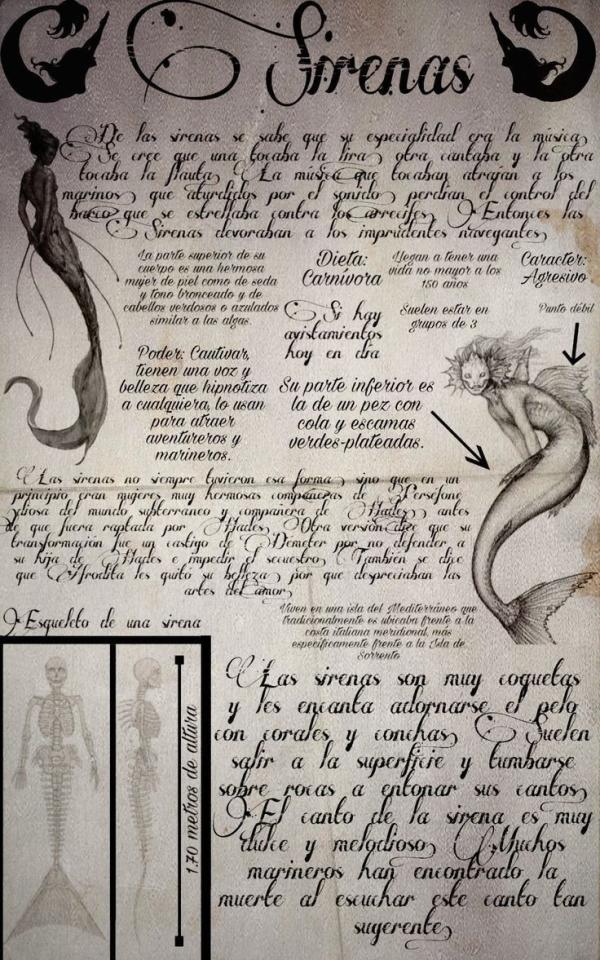 Sirenas
De las sirenas se sabe que su especialidad era la música,
Se cree que una tocaba la lira, otra cantaba y la otra
tocaba la flauta, La música que tocaban atraían a los
marinos, que aturdidos por el sonido, perdían el control del
barco, que se estrellaba contra los arrecifes, Entonces las
Sirenas devoraban a los imprudentes navegantes,
La parte superior de su
cuerpo es una hermosa
mujer de piel como de seda
y tono bronceado y de
cabellos verdosos o azulados
similar a las algas.
Dieta:
Carnívora
Llegan a tener una
vida no mayor a los
150 años
Caracter:
Agresivo
Si hay
avistamientos
hoy en día
Suelen estar en
grupos de 3
Punto débil
Poder: Cautivar,
tienen una voz y
belleza que hipnotiza
a cualquiera, lo usan
para atraer
aventureros y
marineros.
Su parte inferior es
la de un pez con
cola y escamas
verdes-plateadas.
Las sirenas no siempre tuvieron esa forma, sino que en un
principio eran mujeres muy hermosas compañeras de Perséfone
diosa del mundo subterráneo y compañera de Hades, antes
de que fuera raptada por Hades, Otra versión dice que su
transformación fue un castigo de Démeter por no defender a
su hija de Hades e impedir el secuestro, También se dice
que Afrodita les quitó su belleza, por que despreciaban las
artes del amor,
Viven en una isla del Mediterráneo que
tradicionalmente es ubicaba frente a la
costa italiana meridional, más
específicamente frente a la Isla de
Sorrento
Esqueleto de una sirena
1.70 metros de altura
Las sirenas son muy coquetas
y les encanta adornarse el pelo
con corales y conchas, Suelen
salir a la superficie y tumbarse
sobre rocas a entonar sus cantos,
El canto de la sirena es muy
dulce y melodioso, Muchos
marineros han encontrado la
muerte al escuchar este canto tan
sugerente,